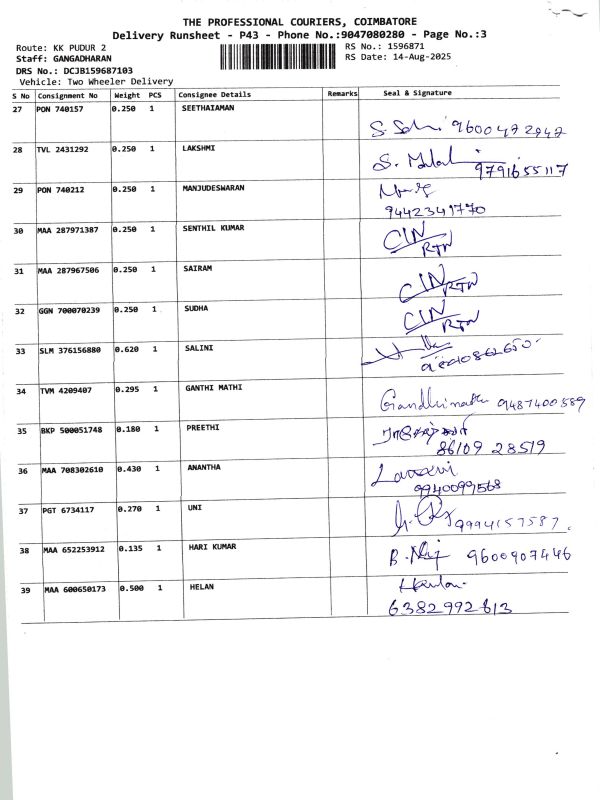 THE PROFESSIONAL COURIERS, COIMBATORE
Delivery Runsheet - P43 - Phone No.:9047080280 - Page No.:3
Route: KK PUDUR 2
RS No.: 1596871
Staff: GANGADHARAN
RS Date: 14-Aug-2025
DRS No.: DCJB159687103
Vehicle: Two Wheeler Delivery
S No Consignment No Weight PCS Consignee Details Remarks Seal & Signature
27 PON 740157 0.250 1 SEETHAIAMAN
9600472942
28 TVL 2431292 0.250 1 LAKSHMI
9791655117
29 PON 740212 0.250 1 MANJUDESWARAN
9442341770
30 MAA 287971387 0.250 1 SENTHIL KUMAR
CIN/RTN
31 MAA 287967506 0.250 1 SAIRAM
CIN/RTN
32 GGN 700070239 0.250 1 SUDHA
CIN/RTN
33 SLM 376156880 0.620 1 SALINI
34 TVM 4209407 0.295 1 GANTHI MATHI
Gandhimathi 9487400589
35 BKP 500051748 0.180 1 PREETHI
86109 28519
36 MAA 708302610 0.430 1 ANANTHA
9940099568
37 PGT 6734117 0.270 1 UNI
9994157587.
38 MAA 652253912 0.135 1 HARI KUMAR
9600907446
39 MAA 600650173 0.500 1 HELAN
6382992613